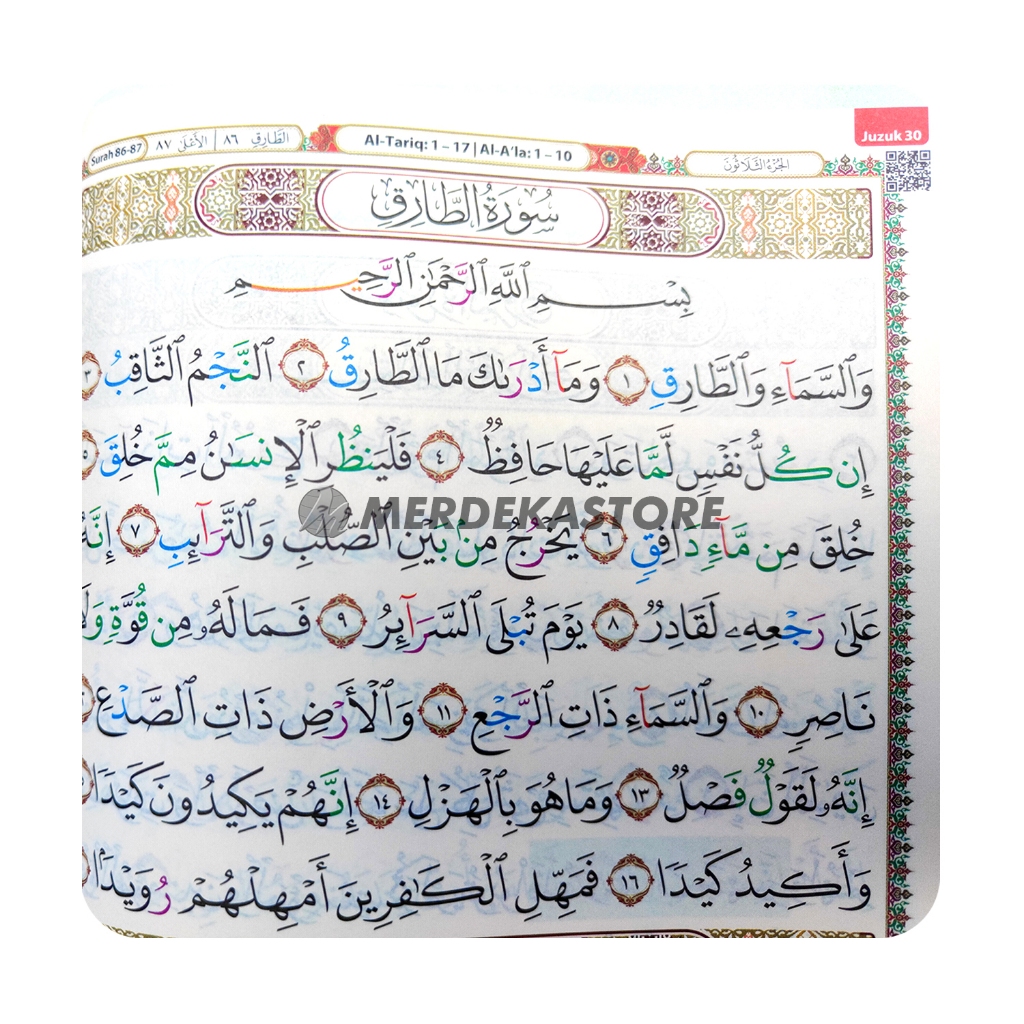 Juzuk 30
Surah 86-87
الطَّارِقِ ٨٦ | الأَعْلَى ٨٧
Al-Tariq: 1 – 17 | Al-A'la: 1 – 10
الجُزْءُ الثَّلَاثُونَ
سُورَةُ الطَّارِقِ
بِسْمِ ٱللَّهِ ٱلرَّحْمَٰنِ ٱلرَّحِيمِ
وَٱلسَّمَآءِ وَٱلطَّارِقِ ١ وَمَآ أَدْرَىٰكَ مَا ٱلطَّارِقُ ٢ ٱلنَّجْمُ ٱلثَّاقِبُ ٣
إِن كُلُّ نَفْسٍ لَّمَّا عَلَيْهَا حَافِظٌ ٤ فَلْيَنظُرِ ٱلْإِنسَٰنُ مِمَّ خُلِقَ ٥
خُلِقَ مِن مَّآءٍ دَافِقٍ ٦ يَخْرُجُ مِنۢ بَيْنِ ٱلصُّلْبِ وَٱلتَّرَآئِبِ ٧ إِنَّهُۥ
عَلَىٰ رَجْعِهِۦ لَقَادِرٌ ٨ يَوْمَ تُبْلَى ٱلسَّرَآئِرُ ٩ فَمَا لَهُۥ مِن قُوَّةٍ وَلَا
نَاصِرٍ ١٠ وَٱلسَّمَآءِ ذَاتِ ٱلرَّجْعِ ١١ وَٱلْأَرْضِ ذَاتِ ٱلصَّدْعِ
إِنَّهُۥ لَقَوْلٌ فَصْلٌ ١٣ وَمَا هُوَ بِٱلْهَزْلِ ١٤ إِنَّهُمْ يَكِيدُونَ كَيْدًا
وَأَكِيدُ كَيْدًا ١٦ فَمَهِّلِ ٱلْكَٰفِرِينَ أَمْهِلْهُمْ رُوَيْدًۢا
MERDEKASTORE